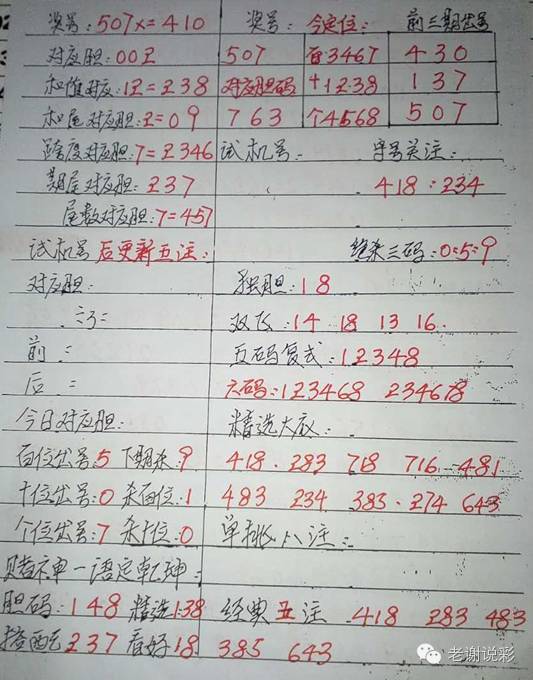 奖号:507x=410 奖号: 今定位: 前三期出号
对应胆:00立 507 百3467 430
和值对应:12=238 对应胆码 十1238 137
和尾对应胆:2=09 763 个4568 507
跨度对应胆:7=2346 试机号: 字号关注:
期尾对应胆:237 418:234
尾数对应胆:7=457
试机号后更新五注: 绝杀三码:0:5:9
对应胆: 独胆:18
双飞:14 18 13 16
前: 五码复式:12348
后: 六码:123468 234678
今日对应胆: 精选大底:
百位出号:5 下期杀:9 418.283 718 716 481
十位出号:0 杀百位:1 483 234 383.274 643
个位出号:7 杀十位:0 单挑八注:
赌神一语定乾坤:
胆码:148 精选138 经典五注.418 283 483
搭配237 看好18 385 643
老谢说彩